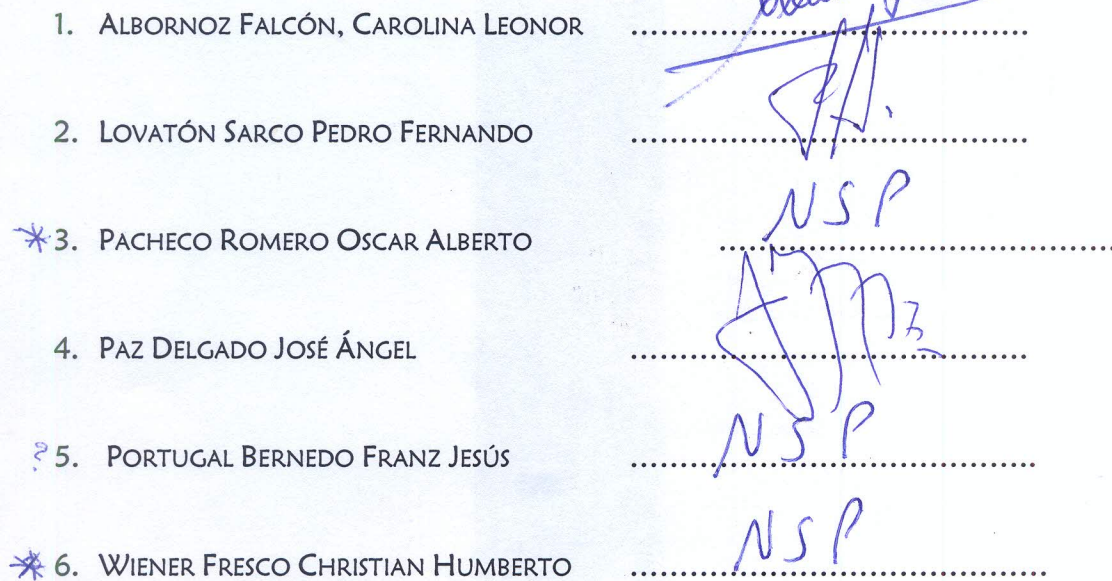 1. ALBORNOZ FALCÓN, CAROLINA LEONOR ........................................
2. LOVATÓN SARCO PEDRO FERNANDO ........................................
*3. PACHECO ROMERO OSCAR ALBERTO NSP ........................................
4. PAZ DELGADO JOSÉ ÁNGEL ........................................
? 5. PORTUGAL BERNEDO FRANZ JESÚS NSP ........................................
* 6. WIENER FRESCO CHRISTIAN HUMBERTO NSP ........................................